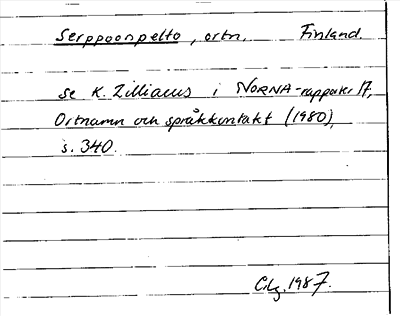 Serppoonpelto, ortn. Finland.
se K. Zilliacus i NORNA-rapporter 17,
Ortnamn och språkkontakt (1980),
s. 340.
C.lg. 1987.